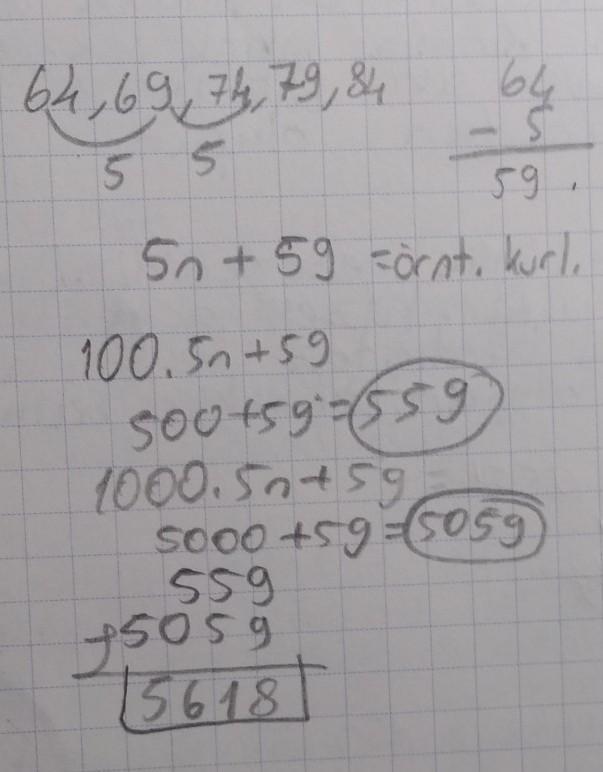 64, 69, 74, 79, 84
5 5
64
- 5
59.
5n + 59 = örnt. kurl.
100.5n+59
500+59=559
1000.5n+59 =
5000+59=5059
559
+5059
5618